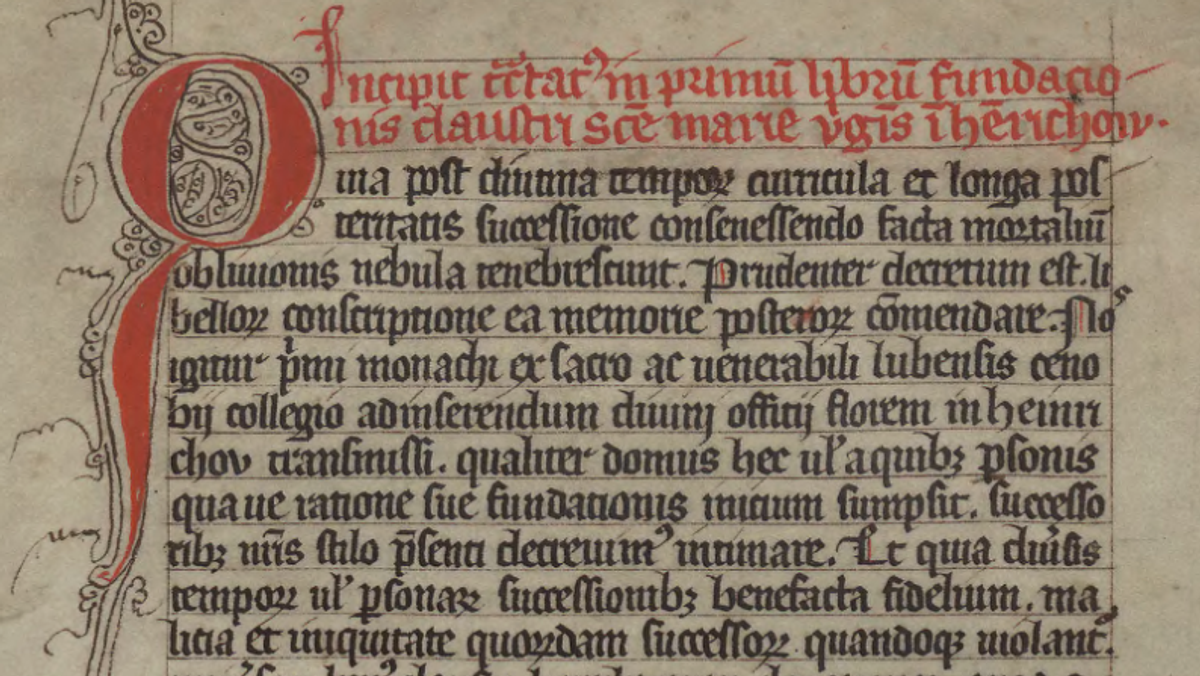 Incipit tractatꝰ in primū librū fundacio
nis claustri scē marie v̓gīs ī hēnrichow.
Quia post diutina tempoꝝ curricula et longa pos
teritatis successione consenessendo facta mortaliū
obliuionis nebula tenebrescunt. Prudenter decretum est. li
belloꝝ conscriptione ea memorie posteroꝝ cōmendare. Nos
igitur pͥmi monachi ex sacro ac uenerabili lubensis ceno
bij collegio ad inserendum diuinj officij florem in heinri
chov transmissi. qualiter domus hec ul̓ a quibꝫ ꝑsonis
qua ue ratione sue fundationis inicium sumpsit. successo
ribꝫ nr̄is stilo p̄senti decreuimꝰ intimare. Et quia diu̓sis
tempoꝝ ul̓ ꝑsonaꝝ successionibꝫ benefacta fidelium. ma
licia et iniquitate quoꝝdam successoꝝ quandoqꝫ uiolant᷑.